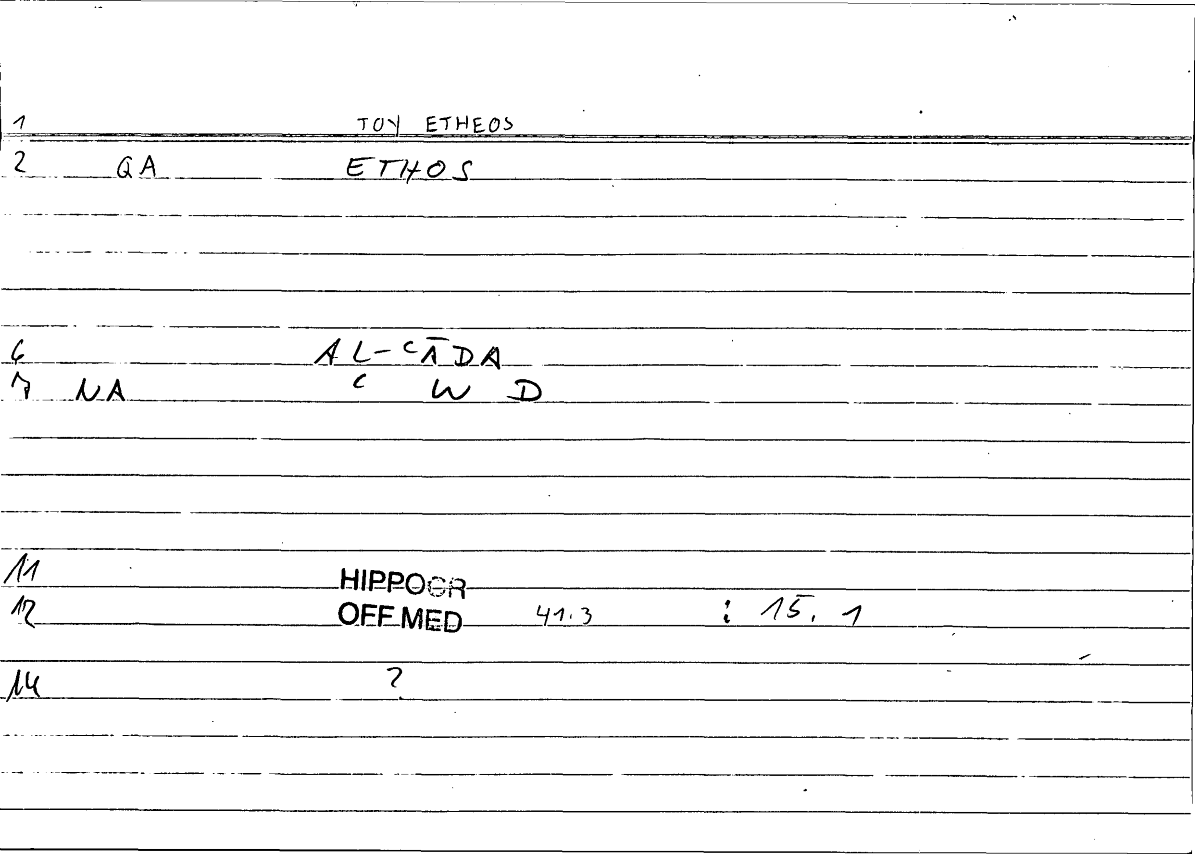 1 TOY ETHEOS
2 QA ETHOS
6 AL-ʿĀDA
7 NA ʿ W D
11 HIPPOCR
12 OFF MED 41.3 : 15. 1
14 ?